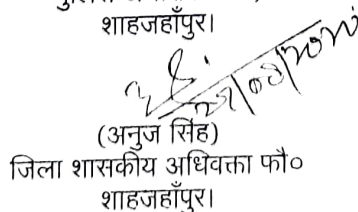 शाहजहाँपुर।
(अनुज सिंह)
जिला शासकीय अधिवक्ता फौ०
शाहजहाँपुर।